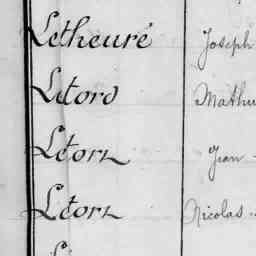 Letheuré Joseph
Létord Mathu
Létorz Jean
Létorz Nicolas